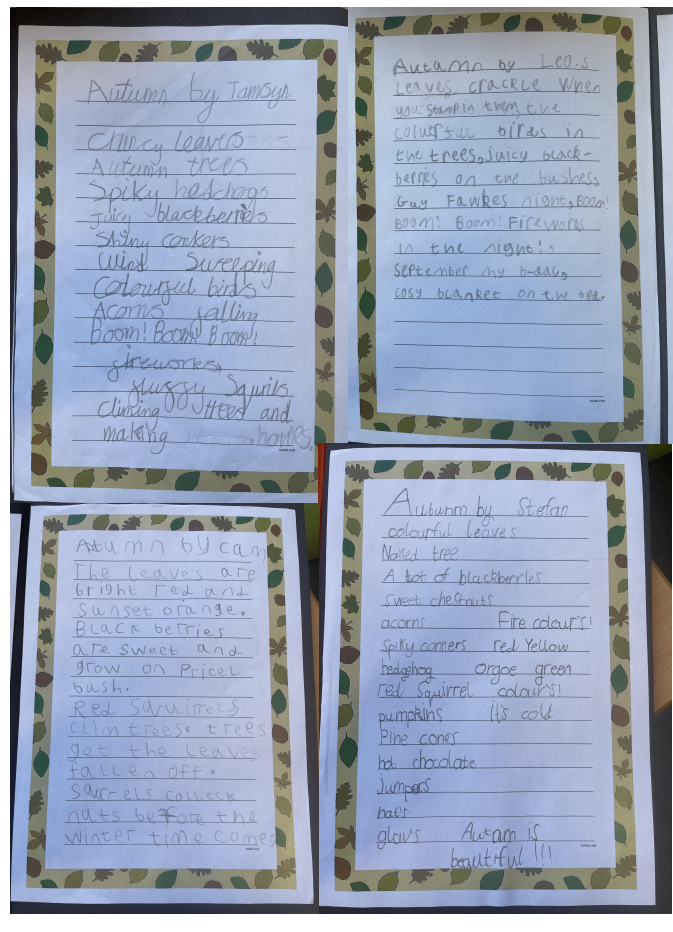 Autumn by Tamsyn
Chincy leaves
Autumn trees
Spiky hedchogs
Juicy blackberries
Shiny conkers
Wind Sweeping
Colourful birds
Acorns falling
Boom! Boom! Boom!
fireworks,
fluffy Squrils
Climing trees and
making homes.
Autumn by Leo.s
Leaves crackle when
you stamp in them, the
colourful birds in
the trees, juicy black-
berries on the bushes,
Guy Fawkes night, BOOM!
BOOM! Boom! Fireworks
in the night!,
September my b-day,
cosy blanket on the bed.
Autumn by cam
The leaves are
bright red and
sunset orange.
Black berries
are sweet and
grow on Pricel
bush.
Red Squirrels
clim trees. trees
get the leaves
fallen off.
Squrrels colleck
nuts before the
winter time comes
Autunm by Stefan
colourful leaves
Naked tree
A lot of blackberries
sweet chestnuts
acorns Fire colour's!
spiky conkers red Yellow
hedgehog orgoe green
red Squirrel colour's!
pumpkins it's cold
Pine cones
hot chocolate
jumpers
hat's
glovs Autam is
beautiful!!!